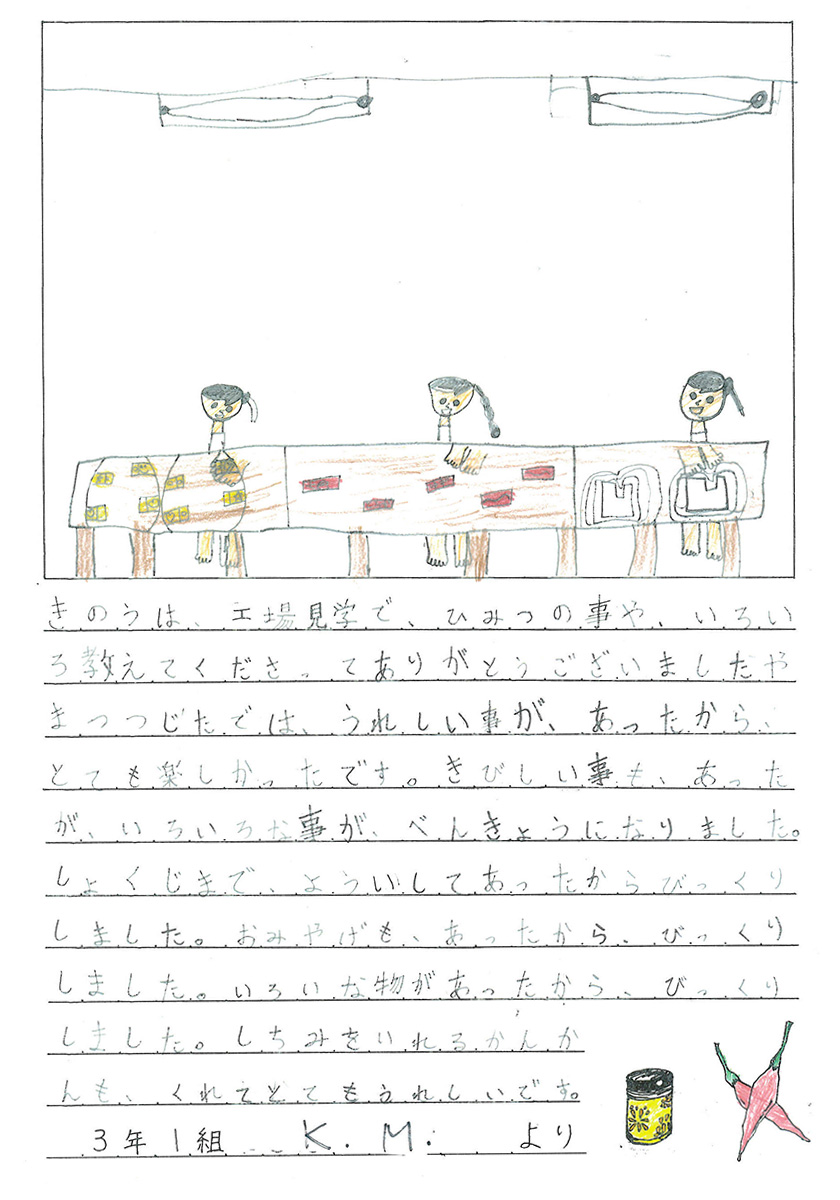 きのうは、工場見学で、ひみつの事や、いろい
ろ教えてくださってありがとうございましたや
まつつじたでは、うれしい事が、あったから、
とても楽しかったです。きびしい事も、あった
が、いろいろな事が、べんきょうになりました。
しょくじまで、よういしてあったからびっくり
しました。おみやげも、あったから、びっくり
しました。いろいな物があったから、びっくり
しました。しちみをいれるかんか
んも、くれてとてもうれしいです。
3年1組 K.M. より